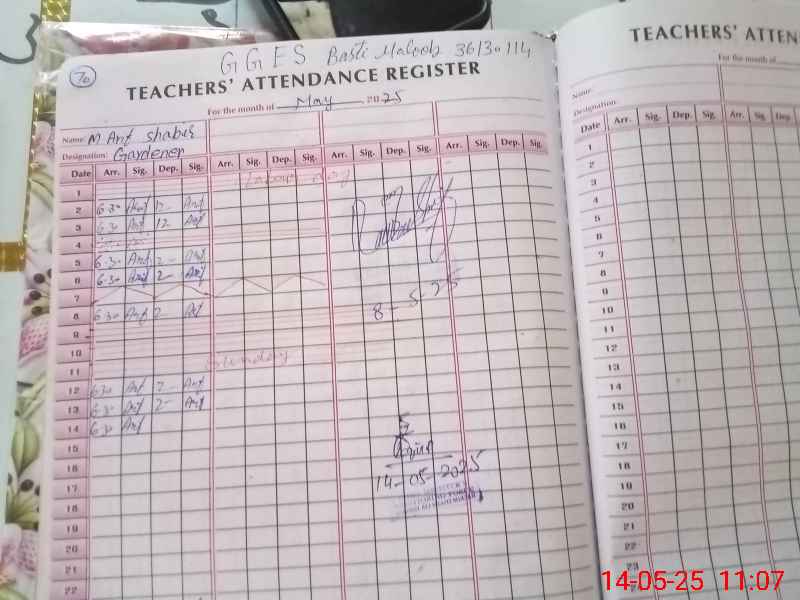 70
G G E S Basti Malook 36130114
TEACHERS' ATTENDANCE REGISTER
For the month of May 2025
Name: M Arif Shabir
Designation: Gardener
Date Arr. Sig. Dep. Sig. Arr. Sig. Dep. Sig. Arr. Sig. Dep. Sig. Arr. Sig. Dep. Sig.
1 Labour Day
2 6.30 Arif 12 - Arif
3 6.30 Arif 12 Arif
4
5 6.30 Arif 2 - Arif
6 6.30 Arif 2 - Arif
7
8 6.30 Arif 2 - Arif
8-5-25
9
10
11 Sunday
12 6.30 Arif 2 - Arif
13 6.30 Arif 2 - Arif
14 6.30 Arif
15
16
17
14-05-2025
18
19
20
21
22
TEACHERS' ATTEN
For the month of
Name:
Designation:
Date Arr. Sig. Dep. Sig. Arr. Sig. Dep.
1
2
3
4
5
6
7
8
9
10
11
12
13
14
15
16
17
18
19
20
21
22
23
14-05-25 11:07